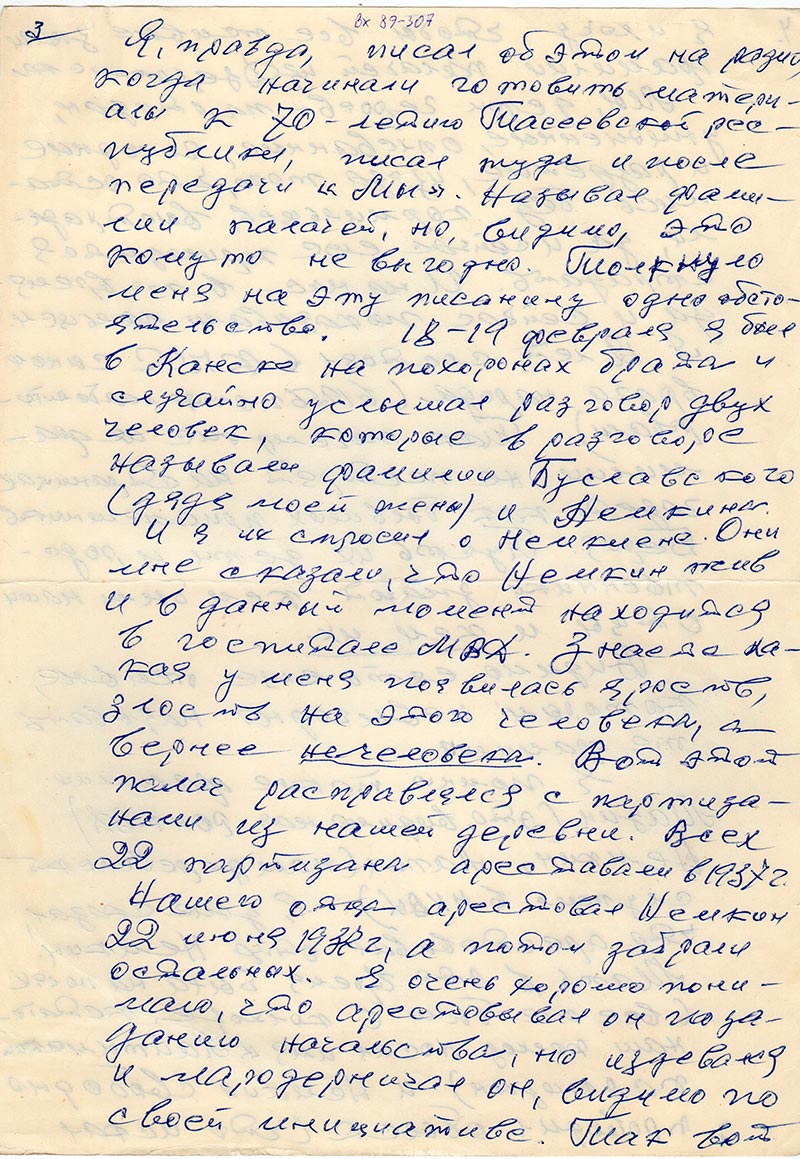 3
Вх 89-307
Я, правда, писал об этом на радио,
когда начинали готовить матери-
алы к 70-летию Тасеевской рес-
публики, писал туда и после
передачи «Мы». Называл фами-
лии палачей, но, видимо, это
кому то не выгодно. Толкнуло
меня на эту писанину одно обсто-
ятельство. 18-19 февраля я был
в Канске на похоронах брата и
случайно услышал разговор двух
человек, которые в разговоре
называли фамилии Буславского
(дядя моей жены) и Немкина.
И я их спросил о Немкине. Они
мне сказали, что Немкин жив
и в данный момент находится
в госпитале МВД. Знаете ка-
кая у меня появилась ярость,
злость на этого человека, а
вернее нечеловека. Вот этот
палач расправлялся с партиза-
нами из нашей деревни. Всех
22 партизана ареставали в 1937 г.
Нашего отца арестовал Немкин
22 июня 1937 г, а потом забрали
остальных. Я очень хорошо пони-
маю, что арестовывал он по за-
данию начальства, но издевался
и мародерничал он, видимо по
своей инициативе. Так вот